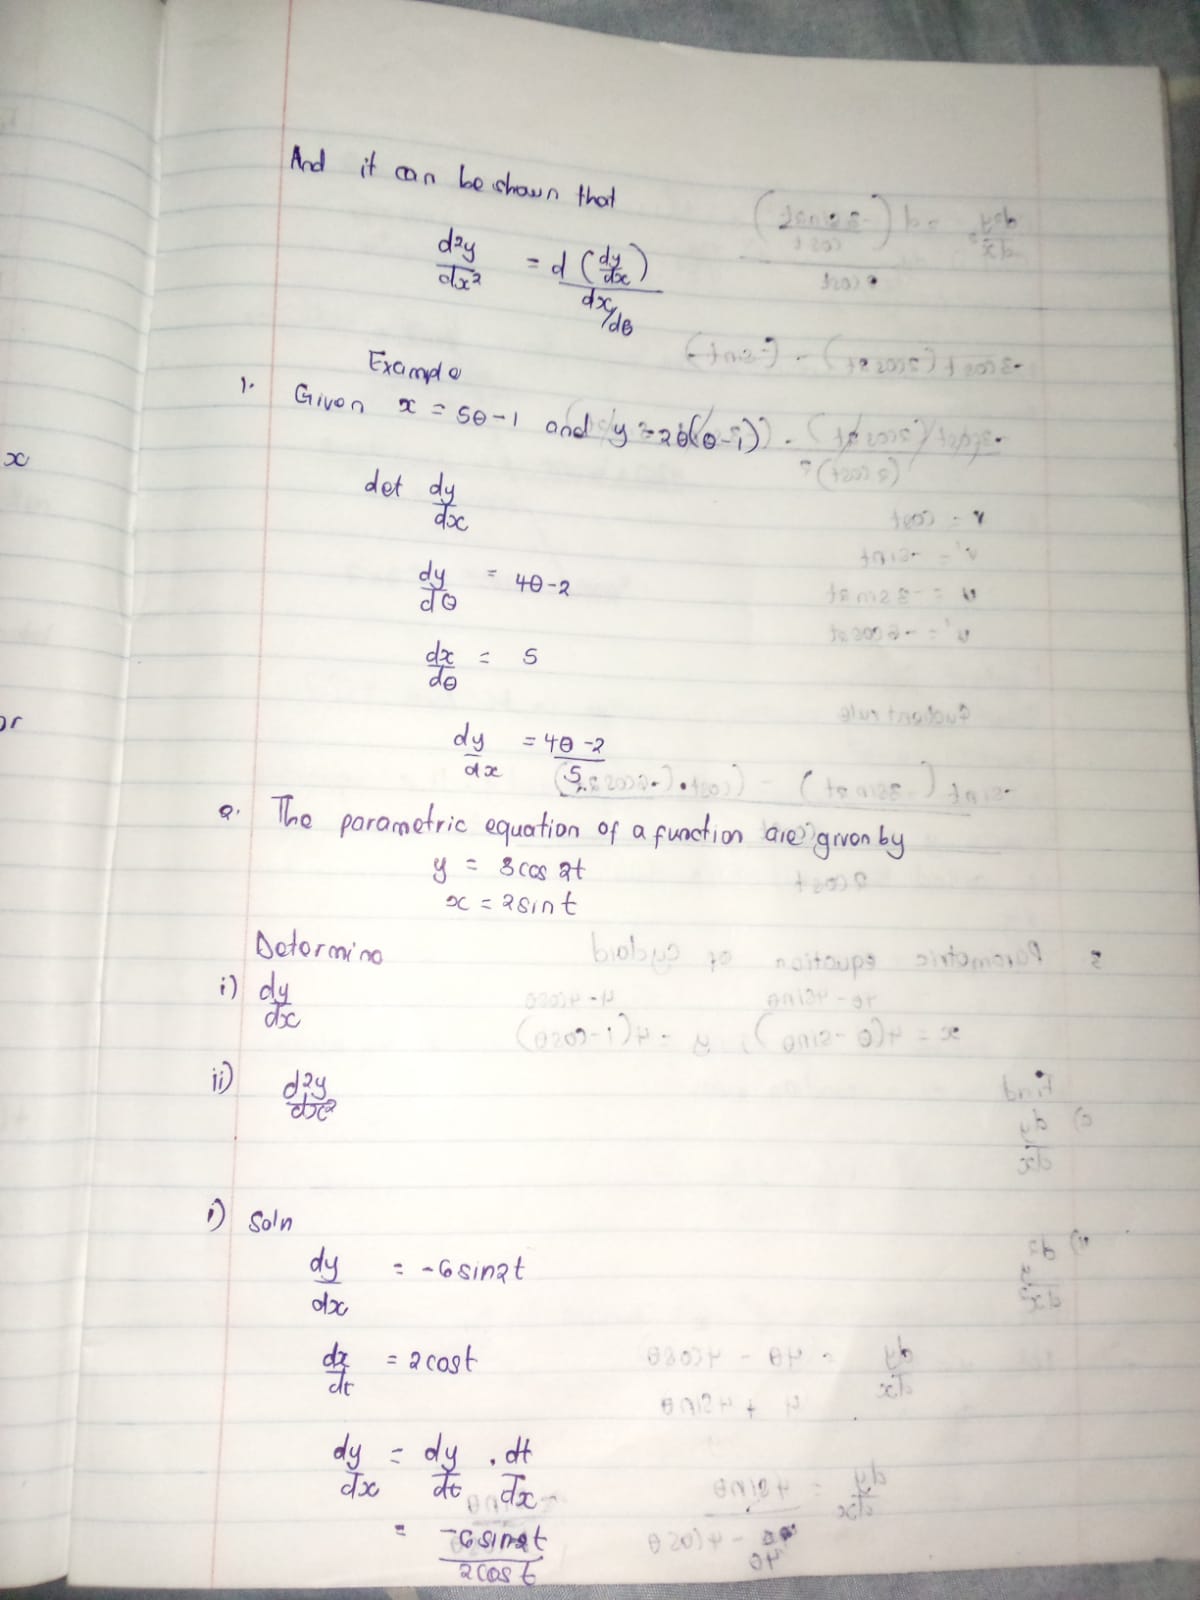 And it can be shown that
d²y/dx² = d(dy/dx)
dx/dθ
Example
1. Given x = 5θ-1 and y = 2θ(θ-1)
det dy/dx
dy/dθ = 4θ-2
dx/dθ = 5
dy/dx = 4θ-2/5
2. The parametric equation of a function are given by
y = 3cos 2t
x = 2sin t
Determine
i) dy/dx
ii) d²y/dx²
i) Soln
dy/dx = -6sin2t
dx/dt = 2cost
dy/dx = dy/dt . dt/dx
= -6sin2t/2cost
x
or